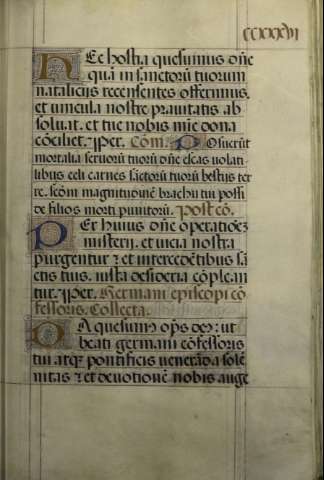 CCXXXVI
HEc hostia quesumus dñe
quā in sanctorū tuorum
natalicijs recensentes offerimus.
et vincula nostre prauitatis ab
soluat. et tue nobis mīe dona
cōciliet. þper. Cōm. POsuerūt
mortalia seruorū tuorū dñe escas uolati
libus celi carnes sāctorū tuorū bestijs ter
re. scđm magnitudinē brachij tui possi
de filios morti punitorū. Post cō.
PEr huius dñe operatiōeȝ
misterij. et vicia nostra
purgentur ⁊ et intercedētibus sā
ctis tuis. iusta desideria cōplean
tur. þper. Germani episcopi cō
fessoris. Collecta.
DA quesumus oṗs deꝰ: ut
beati germani cōfessoris
tui atqȝ pontificis venerāda solē
nitas ⁊ et deuotionē nobis auge